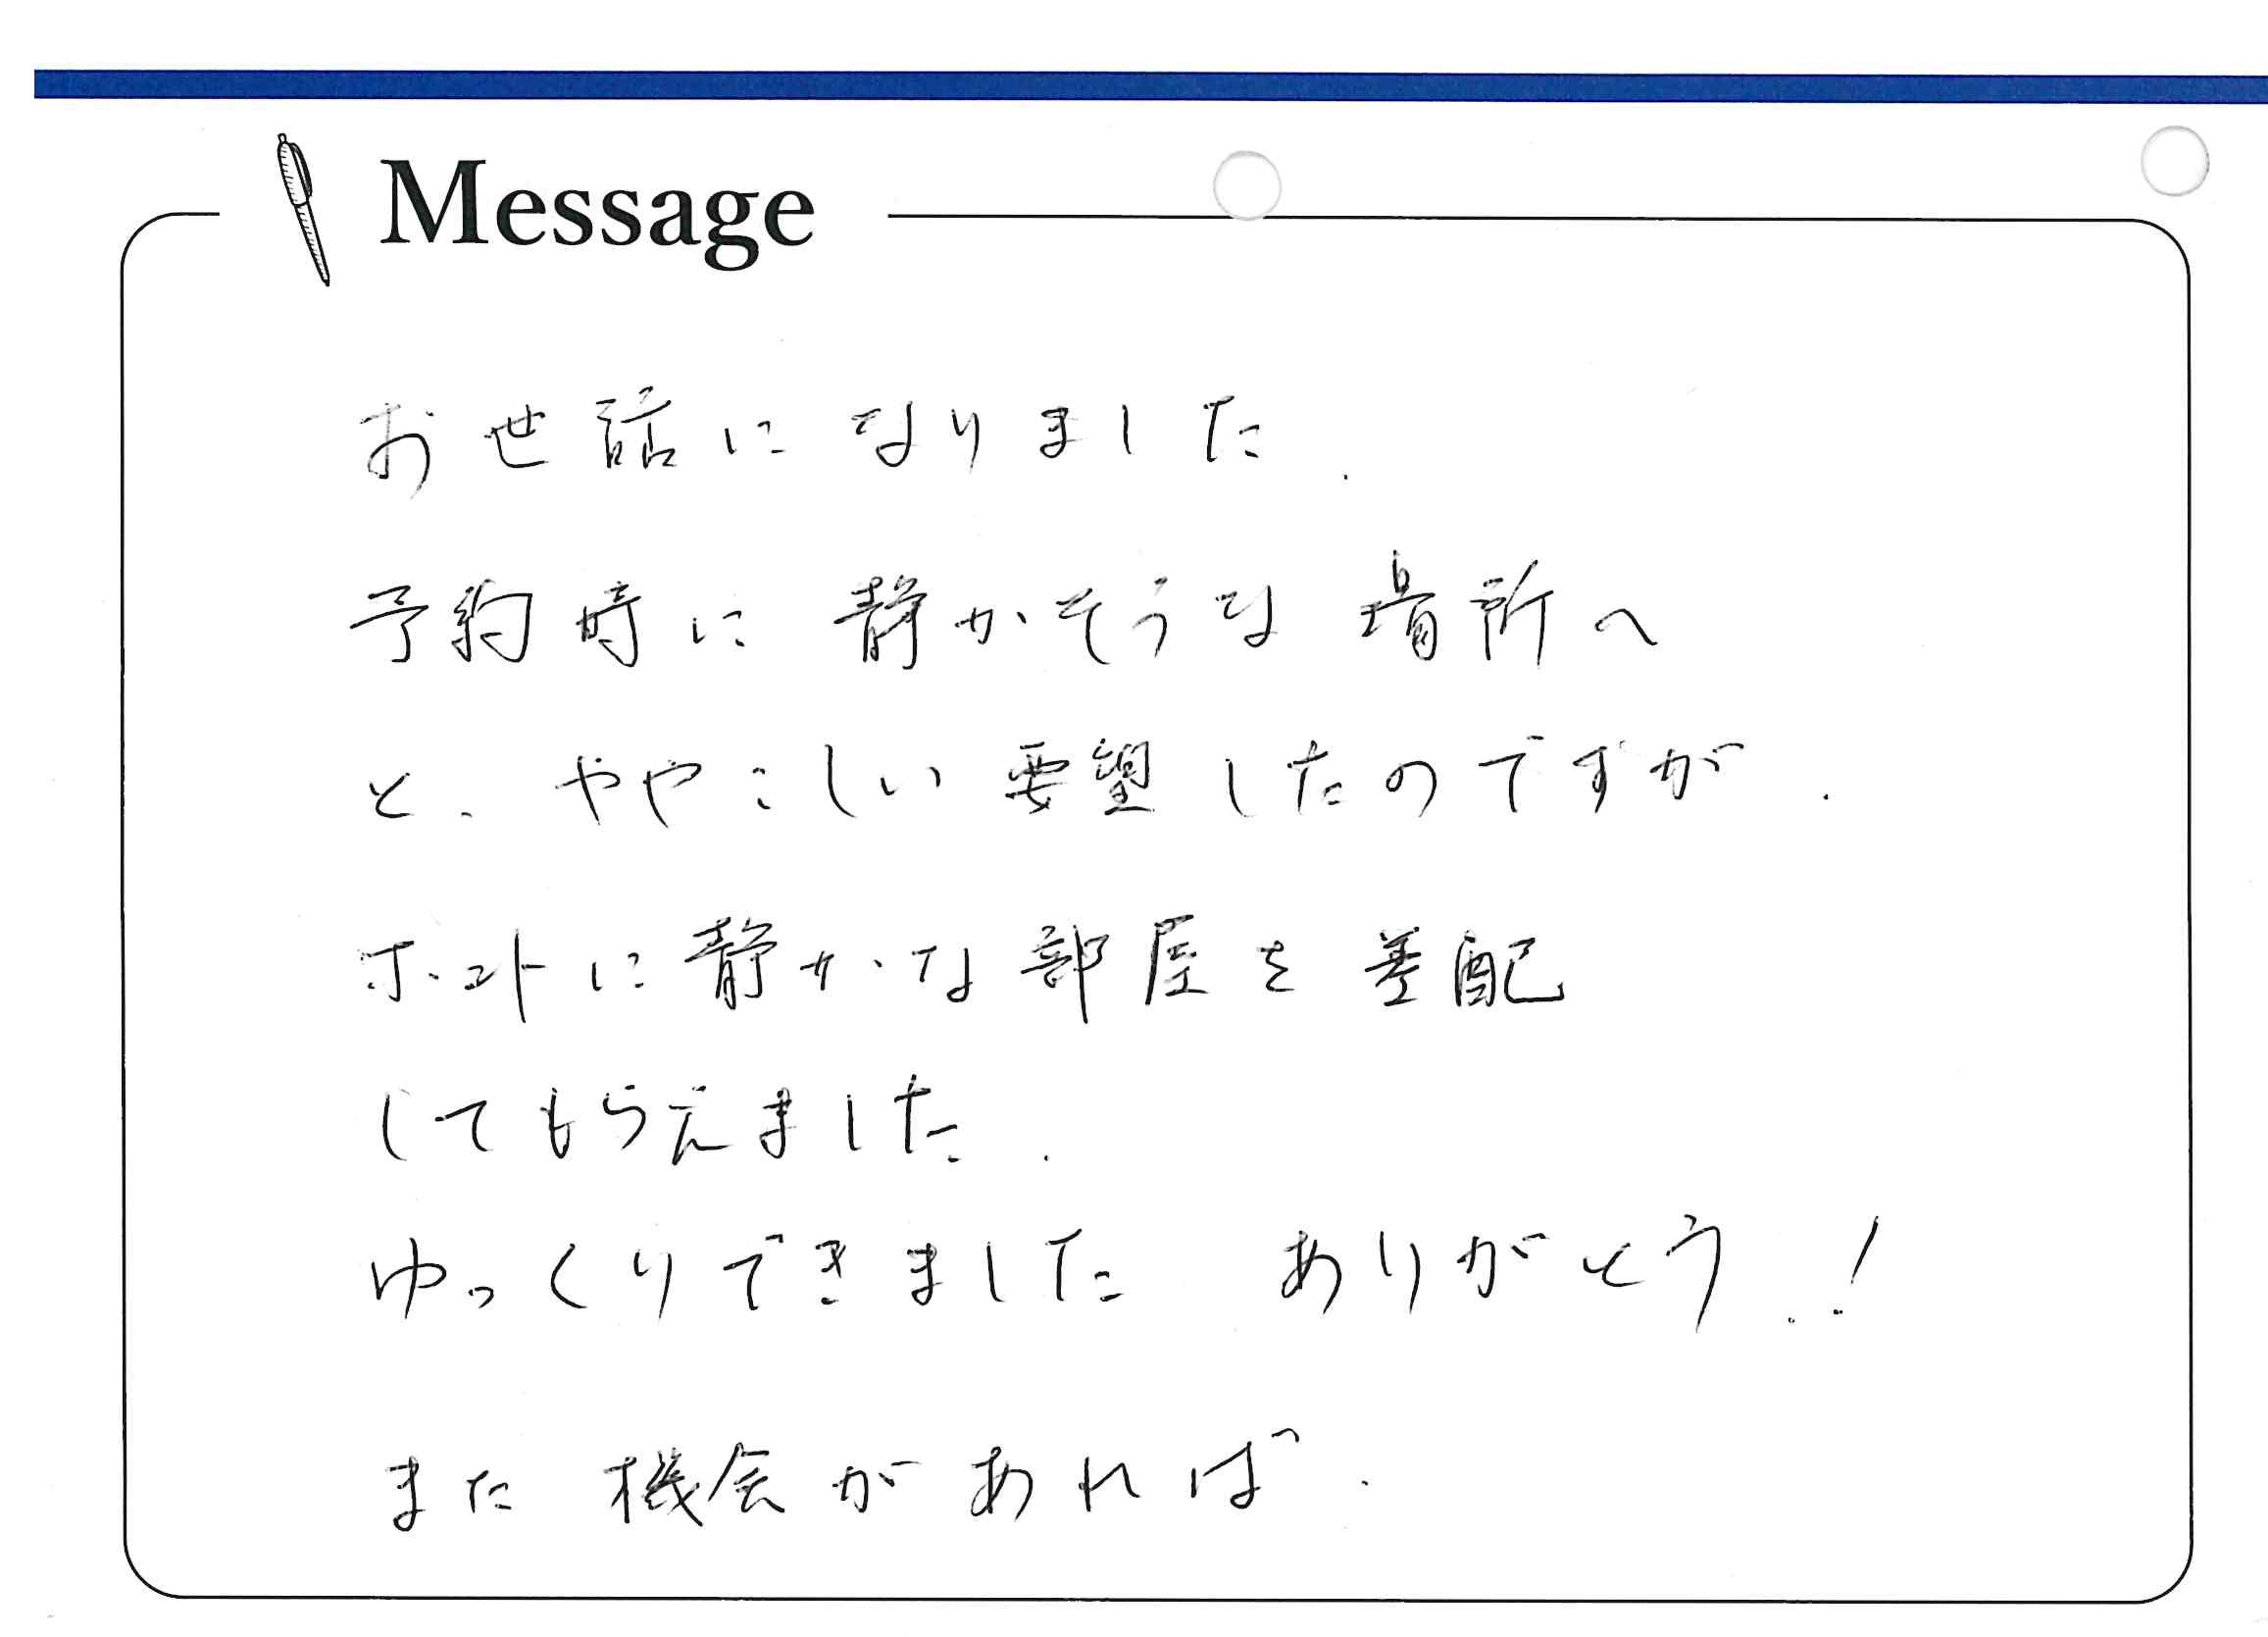 Message
お世話になりました.
予約時に 静かそうな 場所へ
と、ややこしい 要望したのですが.
ホントに静かな部屋を差配
してもらえました.
ゆっくりできました ありがとう..!
また 機会があれば.